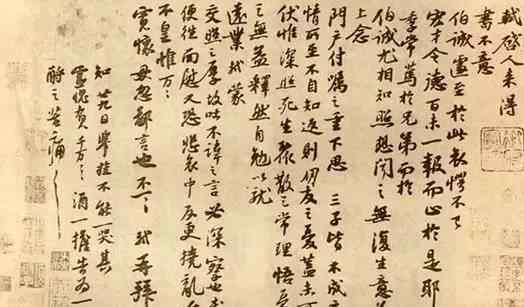 軾啓人來得
書不意
伯誠遽至於此哀愕不已
宏才令德百未一報而止於是耶
季常篤於兄弟而於
伯誠尤相知照想聞之無復生意
上念
門戶付囑之重下思三子皆不成
情所至不自知返則朋友之憂蓋未
伏惟深照死生聚散之常理悟憂
之無益釋然自勉以就
遠業軾蒙
交照之厚故吐不諱之言必深察也本
便往面慰又恐悲哀中反更撓亂
不皇惟萬萬
寬懷毋忽鄙言也不一一軾再拜
知廿九日舉掛不能一哭其
靈愧負千萬千萬酒一擔告為一
酹之苦痛